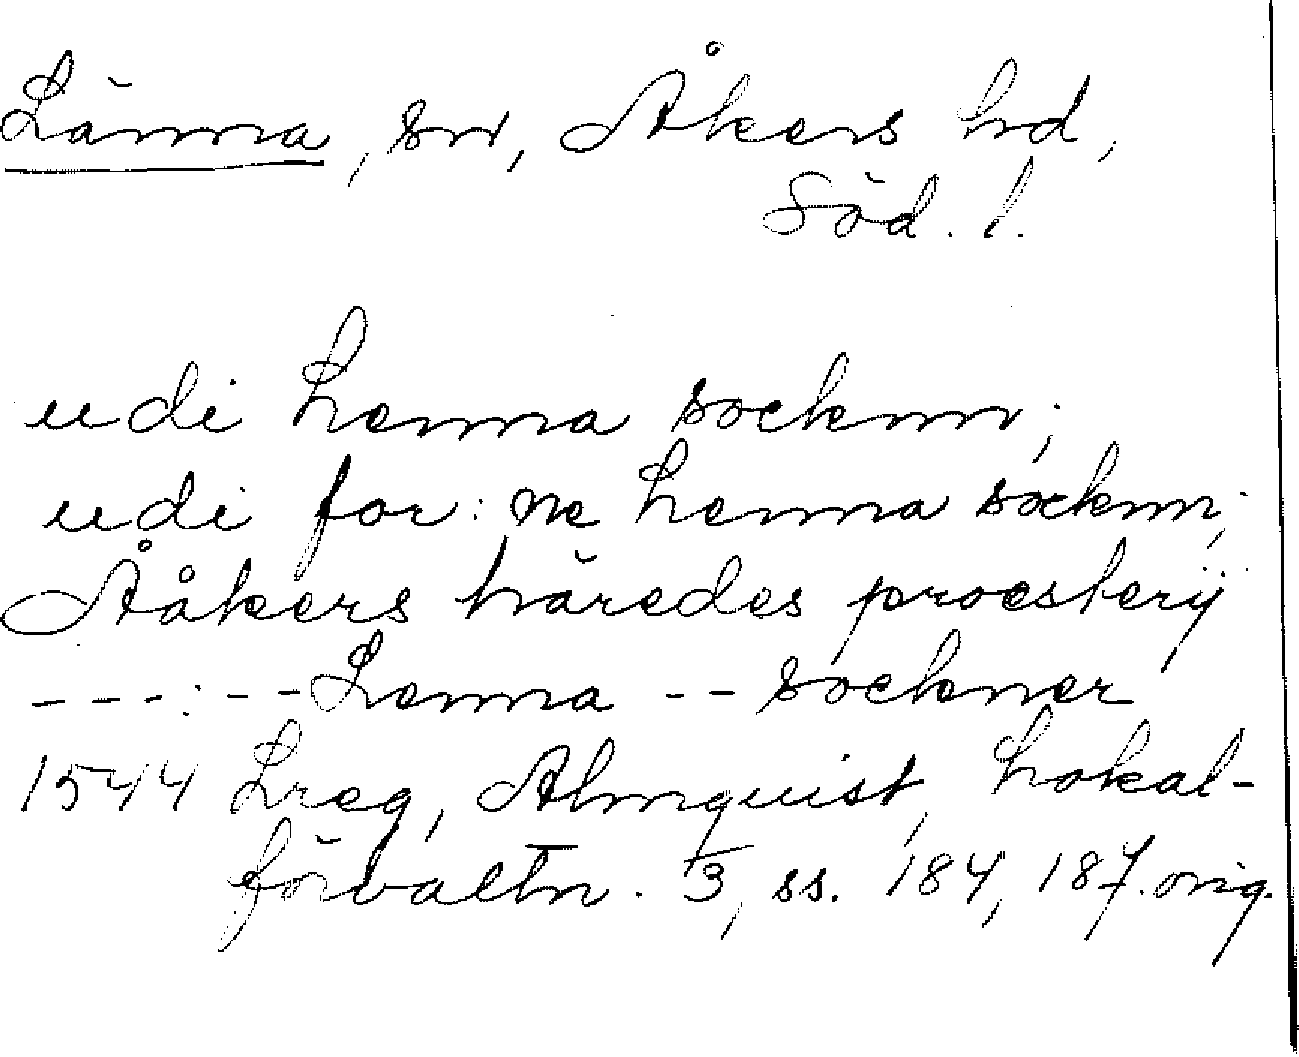 Länna, sn, Åkers hd,
Söd. l.
udi Lenna socknn;
udi for: ne Lenna socknn;
Ååkers häredes proesterij
---:--Lenna -- sockner
1544 Lreg, Almquist, Lokal-
förvaltn. 3, ss. 184, 187. orig.